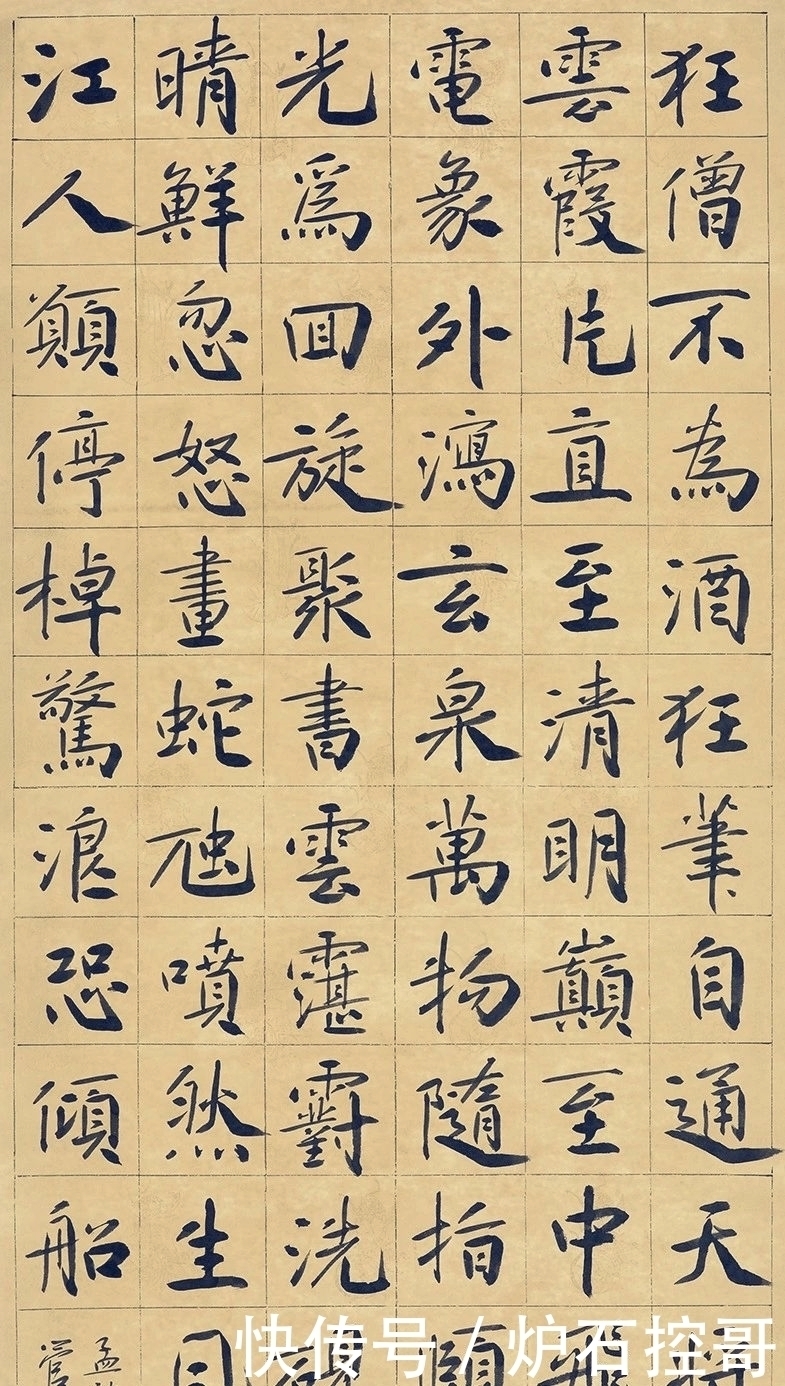 狂僧不為酒狂筆自通天
雲霞片直至清明巔至中
電象外瀉玄泉萬物隨指
光爲回旋聚書雲霮䨴洗
晴鮮忽怒畫蛇虺噴然生
江人願停棹驚浪恐傾船
孟
管
快传号 / 炉石控哥